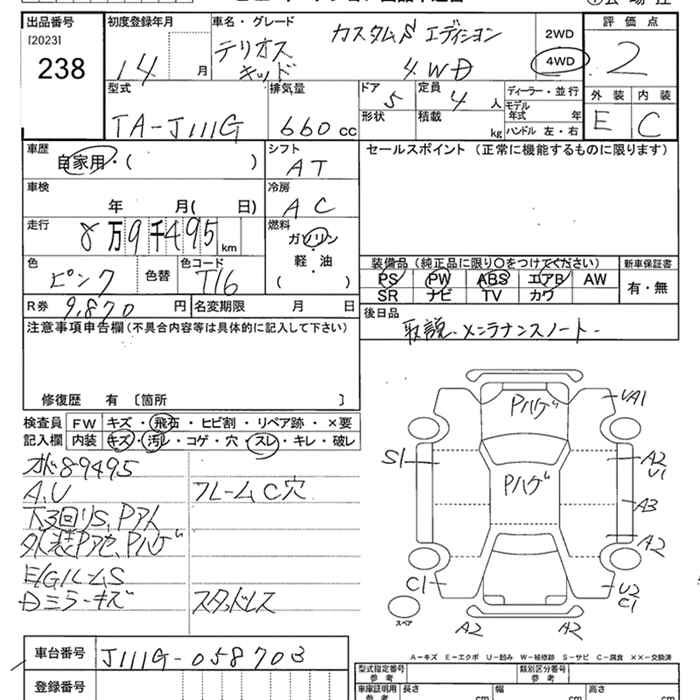 出品番号 初度登録年月 車名・グレード 評価点
[2023]
238
14 月
テリオスキッド カスタムS エディション
4WD
2WD
4WD
2
型式 排気量 ドア 定員 ディーラー・並行 外装 内装
TA-J111G 660 cc 5 4 人
モデル年式 年
形状 積載 kg ハンドル 左・右
E C
車歴 シフト セールスポイント (正常に機能するものに限ります)
自家用・( ) AT
車検 冷房
年 月( 日) AC
走行 燃料
8万9千495 km ガソリン
軽・油
( )
色 色替 色コード
ピンク T16
装備品 (純正品に限り○をつけてください) 新車保証書
PS PW ABS エアB AW 有・無
SR ナビ TV カワ
R券 9,870 円 名変期限 月 日
後日品
取説・メンテナンスノート・
注意事項申告欄(不具合内容等は具体的に記入して下さい)
修復歴 有 [箇所 ]
検査員 FW キズ・飛石・ヒビ割・リペア跡・×要
記入欄 内装 キズ・汚レ・コゲ・穴・スレ・キレ・破レ
オド89495
A,U フレームC穴
下3回りS、Pアト
外装P色、Pハゲ
E/GルームS
Dミラーキズ スタッドレス
Pハゲ
Pハゲ
UA1
S1
A2
U1
A3
A2
C1
U2
C1
A2
A2
スペア
A-キズ E-エクボ U-凹み W-補修跡 S-サビ C-腐食 ××-交換済
車台番号 J111G-058703
型式指定番号 類別区分番号
登録番号
車庫証明用 長さ cm 幅 cm 高さ cm